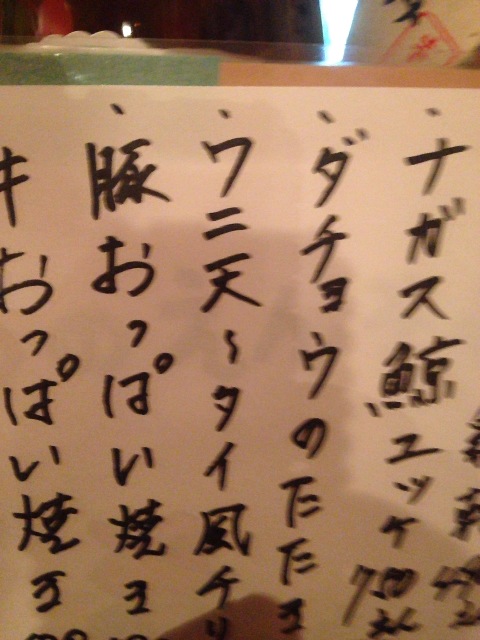 、ナガス鯨ユッケ 750
、ダチョウのたたき
、ワニ天～タイ風チリ
、豚おっぱい焼き
牛おっぱい焼き